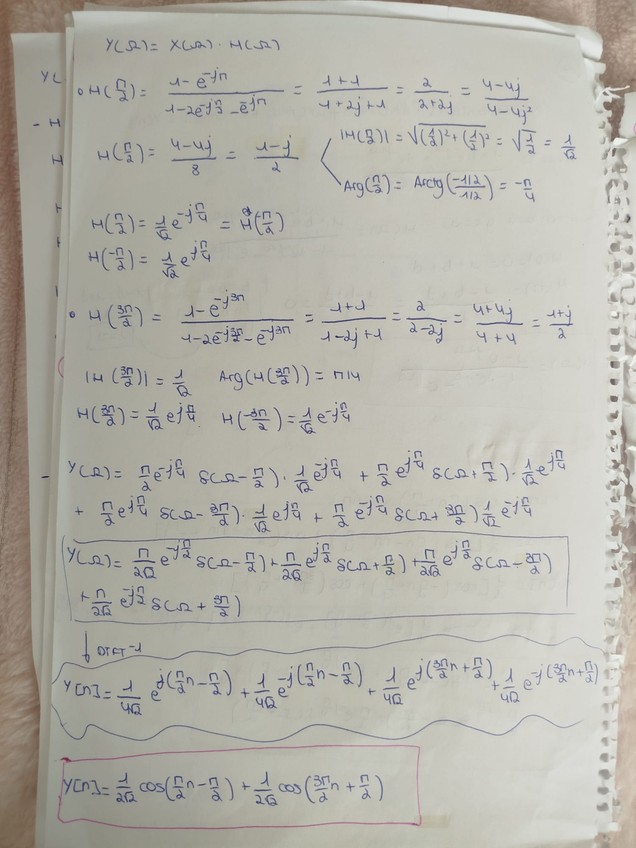 Y(
- H
Y(Ω) = X(Ω) · H(Ω)
∘ H(π/2) = (1 - e^-jπ)/(1 - 2e^-jπ/2 - e^-jπ) = (1+1)/(1+2j+1) = 2/(2+2j) = (4-4j)/(4-4j²)
H(π/2) = (4-4j)/8 = (1-j)/2
|H(π/2)| = √((1/2)² + (1/2)²) = √(1/2) = 1/√2
Arg(π/2) = Arctg((-1/2)/(1/2)) = -π/4
H(π/2) = 1/√2 e^-jπ/4 = H(π/2)
H(-π/2) = 1/√2 e^jπ/4
∘ H(3π/2) = (1 - e^-j3π)/(1 - 2e^-j3π/2 - e^-j3π) = (1+1)/(1-2j+1) = 2/(2-2j) = (4+4j)/(4+4) = (1+j)/2
|H(3π/2)| = 1/√2 Arg(H(3π/2)) = π/4
H(3π/2) = 1/√2 e^jπ/4 H(-3π/2) = 1/√2 e^-jπ/4
- Y(Ω) = π/2 e^-jπ/4 δ(Ω - π/2) · 1/√2 e^-jπ/4 + π/2 e^jπ/4 δ(Ω + π/2) · 1/√2 e^jπ/4
+ π/2 e^jπ/4 δ(Ω - 3π/2) · 1/√2 e^jπ/4 + π/2 e^-jπ/4 δ(Ω + 3π/2) 1/√2 e^-jπ/4
Y(Ω) = π/2√2 e^-jπ/2 δ(Ω - π/2) + π/2√2 e^jπ/2 δ(Ω + π/2) + π/2√2 e^jπ/2 δ(Ω - 3π/2)
+ π/2√2 e^-jπ/2 δ(Ω + 3π/2)
↓ DTFT-1
Y[n] = 1/4√2 e^j(π/2 n - π/2) + 1/4√2 e^-j(π/2 n - π/2) + 1/4√2 e^j(3π/2 n + π/2) + 1/4√2 e^-j(3π/2 n + π/2)
Y[n] = 1/2√2 cos(π/2 n - π/2) + 1/2√2 cos(3π/2 n + π/2)